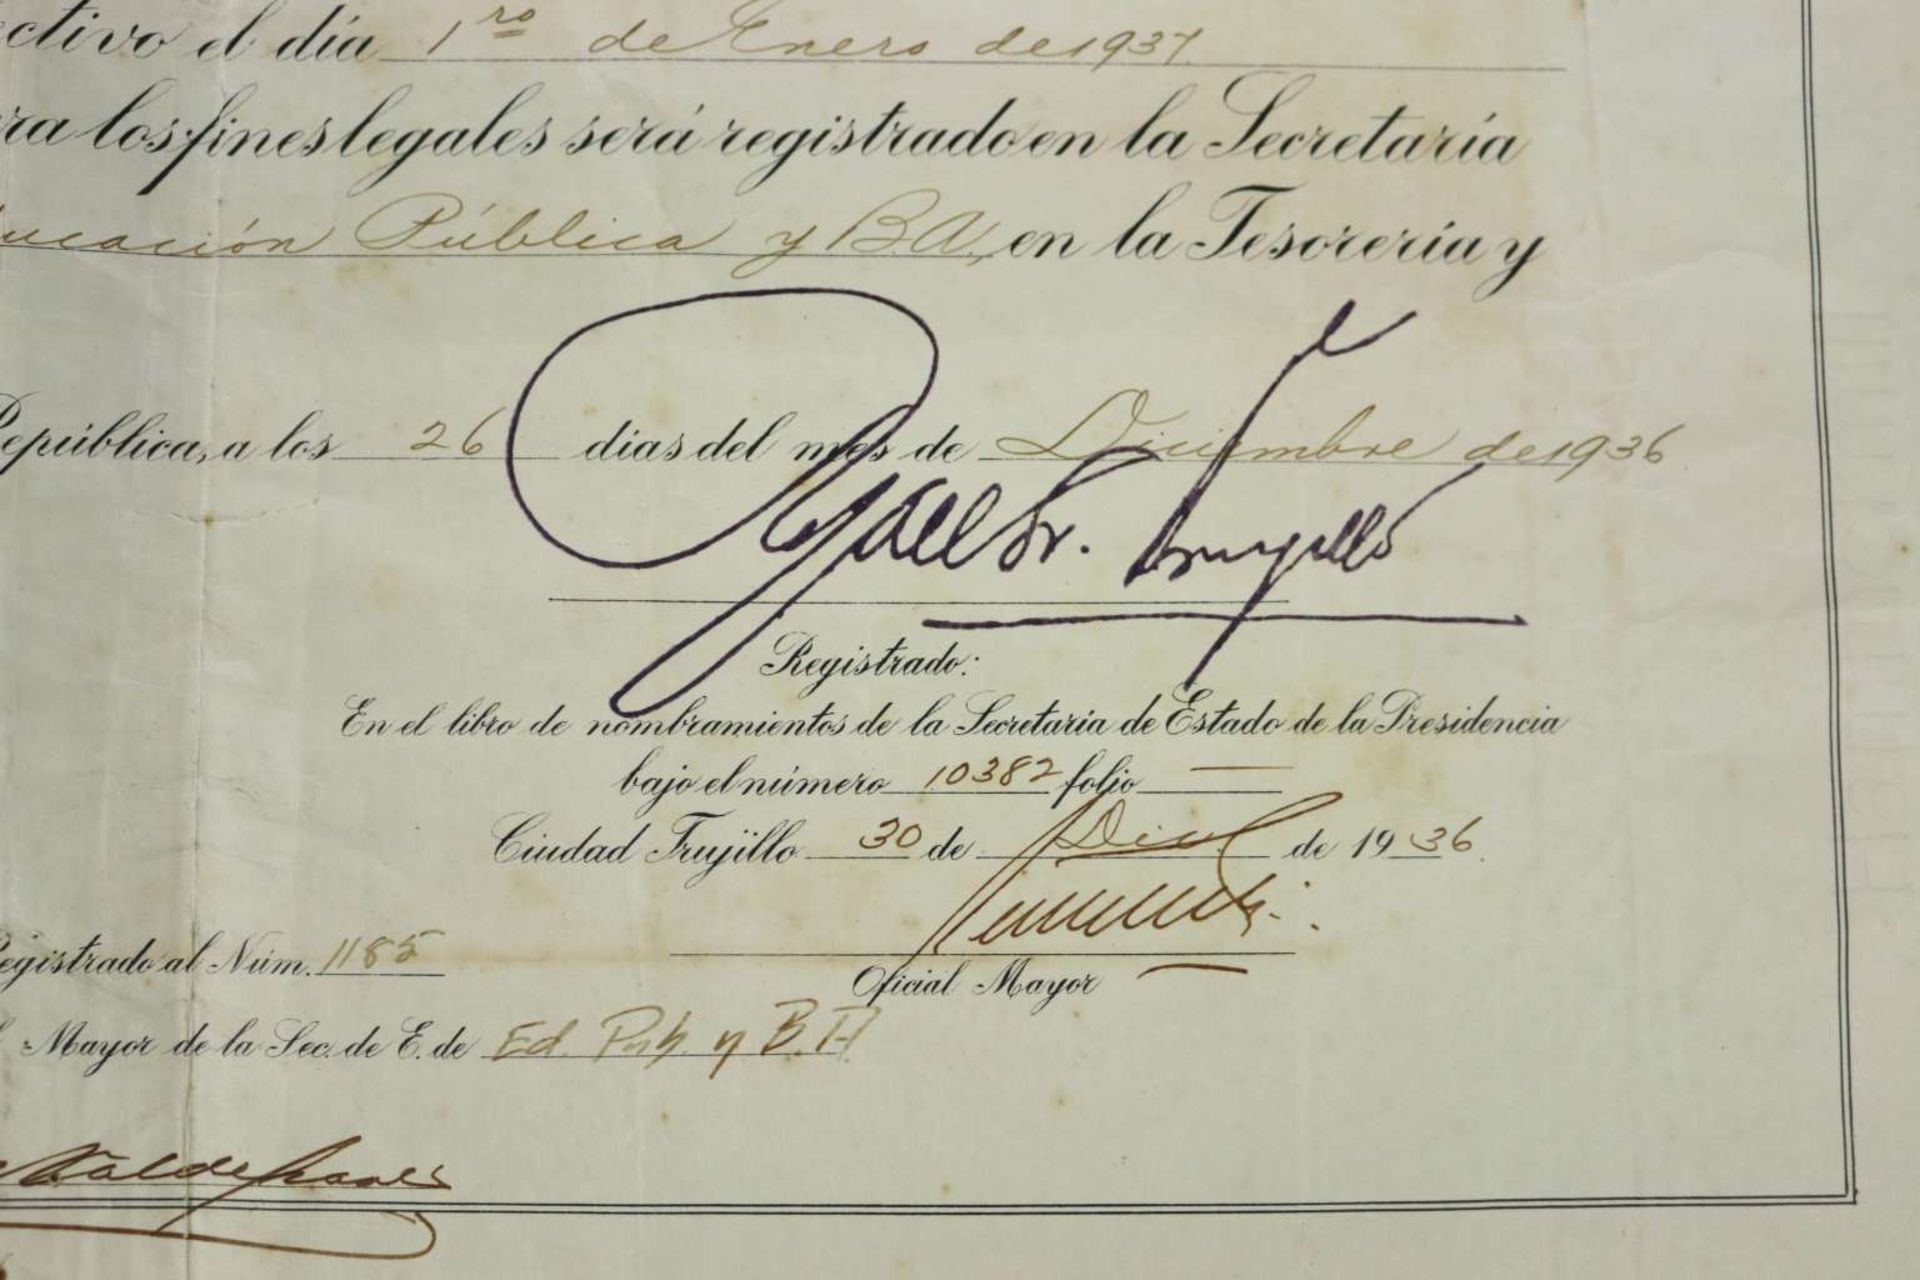 ctivo el día 1ro de Enero de 1937
ra los fines legales será registrado en la Secretaría
ucación Pública y B.A., en la Tesorería y
República, a los 26 días del mes de Diciembre de 1936
Rafael L. Trujillo
Registrado:
En el libro de nombramientos de la Secretaría de Estado de la Presidencia
bajo el número 10382 folio —
Ciudad Trujillo 30 de Dic. de 1936
Registrado al Núm. 1185
Oficial Mayor
Mayor de la Sec. de E. de Ed. Púb. y B.A.